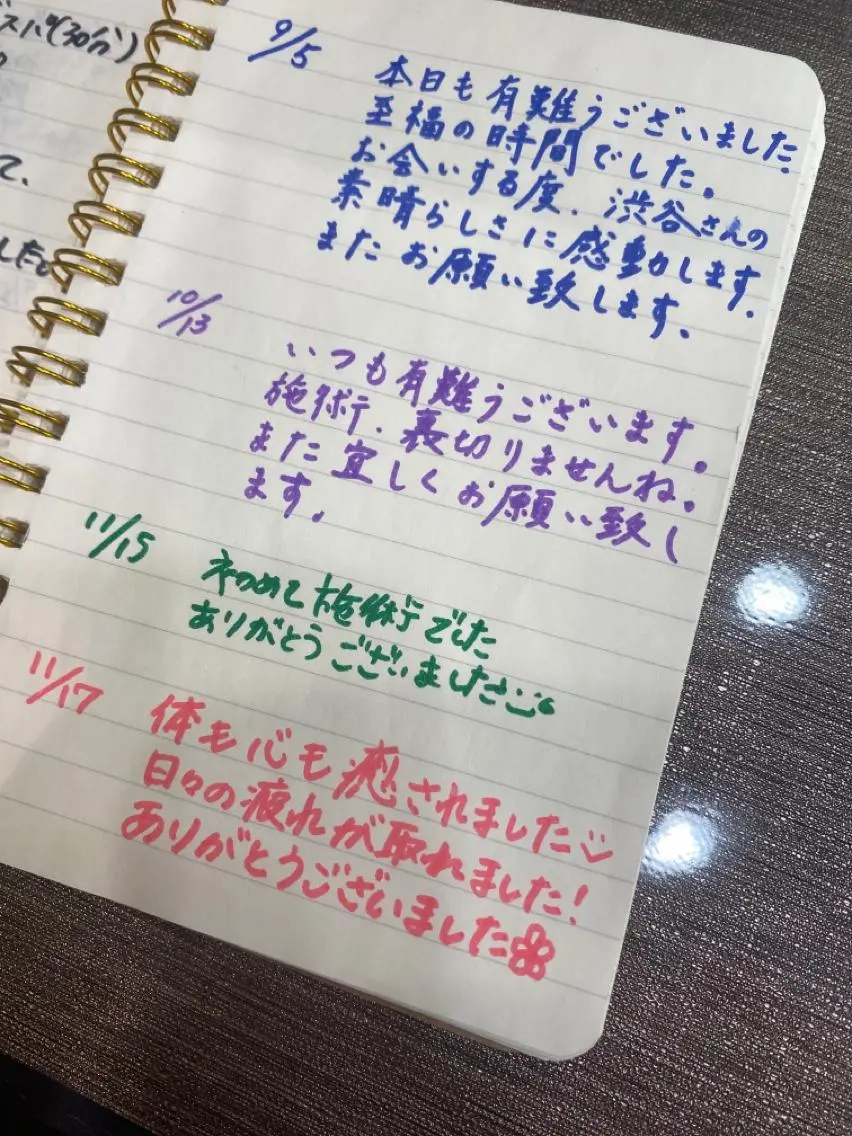 スパ(30分)
て、
した。
9/5
本日も有難うございました
至福の時間でした。
お会いする度、渋谷さんの
素晴らしさに感動します。
またお願い致します。
10/13
いつも有難うございます。
施術、裏切りませんね。
また宜しくお願い致し
ます。
11/15
初めて施術でした
ありがとうございました
11/17
体も心も癒されました
日々の疲れが取れました!
ありがとうございました